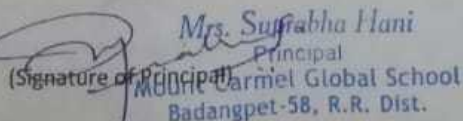 Mrs. Suprabha Hani
Principal
(Signature of Principal)
Mount Carmel Global School
Badangpet-58, R.R. Dist.